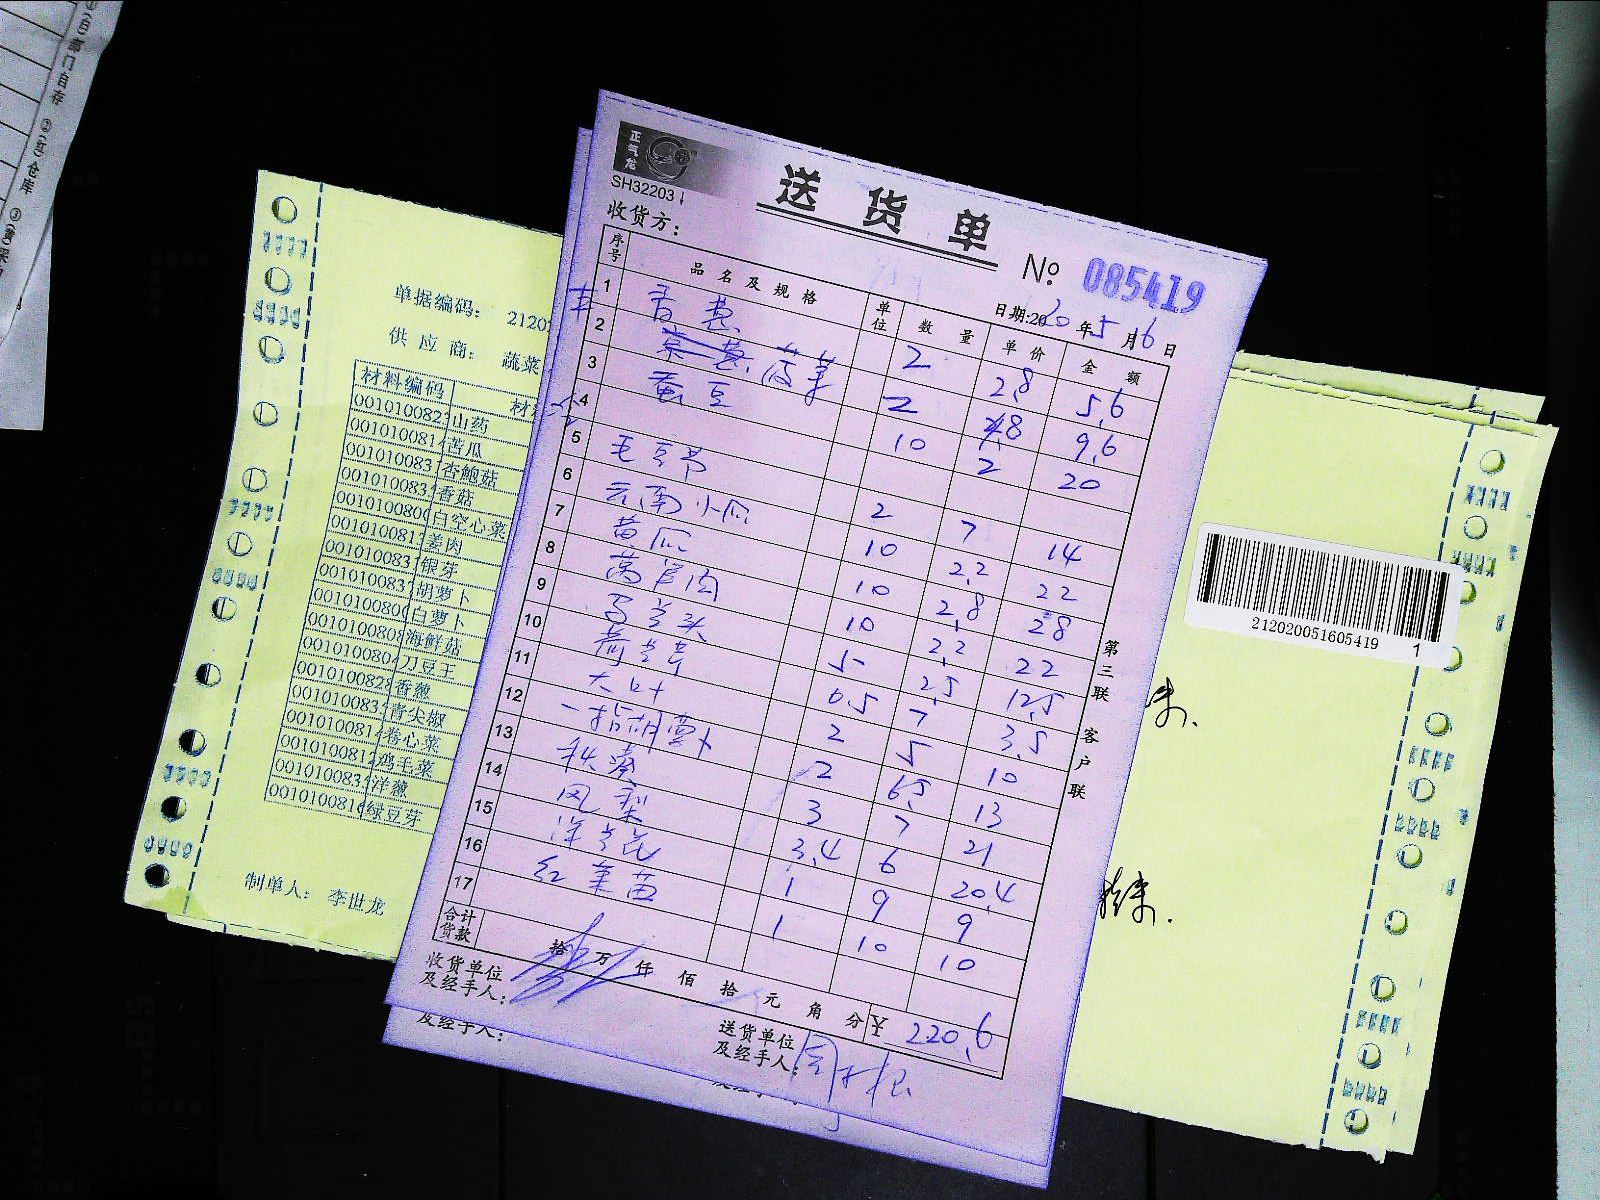 自存 ②(红)仓库 ③(黄)
单据编码: 2120
供 应 商: 蔬菜
材料编码 材
001010082 山药
001010081 苦瓜
001010083 杏鲍菇
001010083 香菇
001010080 白空心菜
001010081 姜肉
001010083 银芽
001010083 胡萝卜
001010080 白萝卜
001010080 海鲜菇
001010080 刀豆王
001010082 香葱
001010083 青尖椒
001010081 卷心菜
001010081 鸡毛菜
001010083 洋葱
001010081 绿豆芽
制单人: 李世龙
正气龙
SH32203
送货单
收货方:
№ 085419
日期:2020年5月6日
序号 品名及规格 单位 数量 单价 金额
1 香葱 2 2.8 5.6
2 菠菜 2 4.8 9.6
3 蚕豆 10 2 20
4
5 毛豆节 2 7 14
6 云南小瓜 10 2.2 22
7 黄瓜 10 2.8 28
8 莴笋肉 10 2.2 22
9 马兰头 5 2.5 12.5
10 荷兰芹 0.5 7 3.5
11 大口十 2 5 10
12 一指胡萝卜 2 6.5 13
13 秋葵 3 7 21
14 凤梨 3.4 6 20.4
15 洋兰花 1 9 9
16 红菜苗 1 10 10
17
合计货款 拾 万 仟 佰 拾 元 角 分 ¥ 220.6
收货单位及经手人:
送货单位及经手人:
第三联 客户联
及经手人:
212020051605419 1